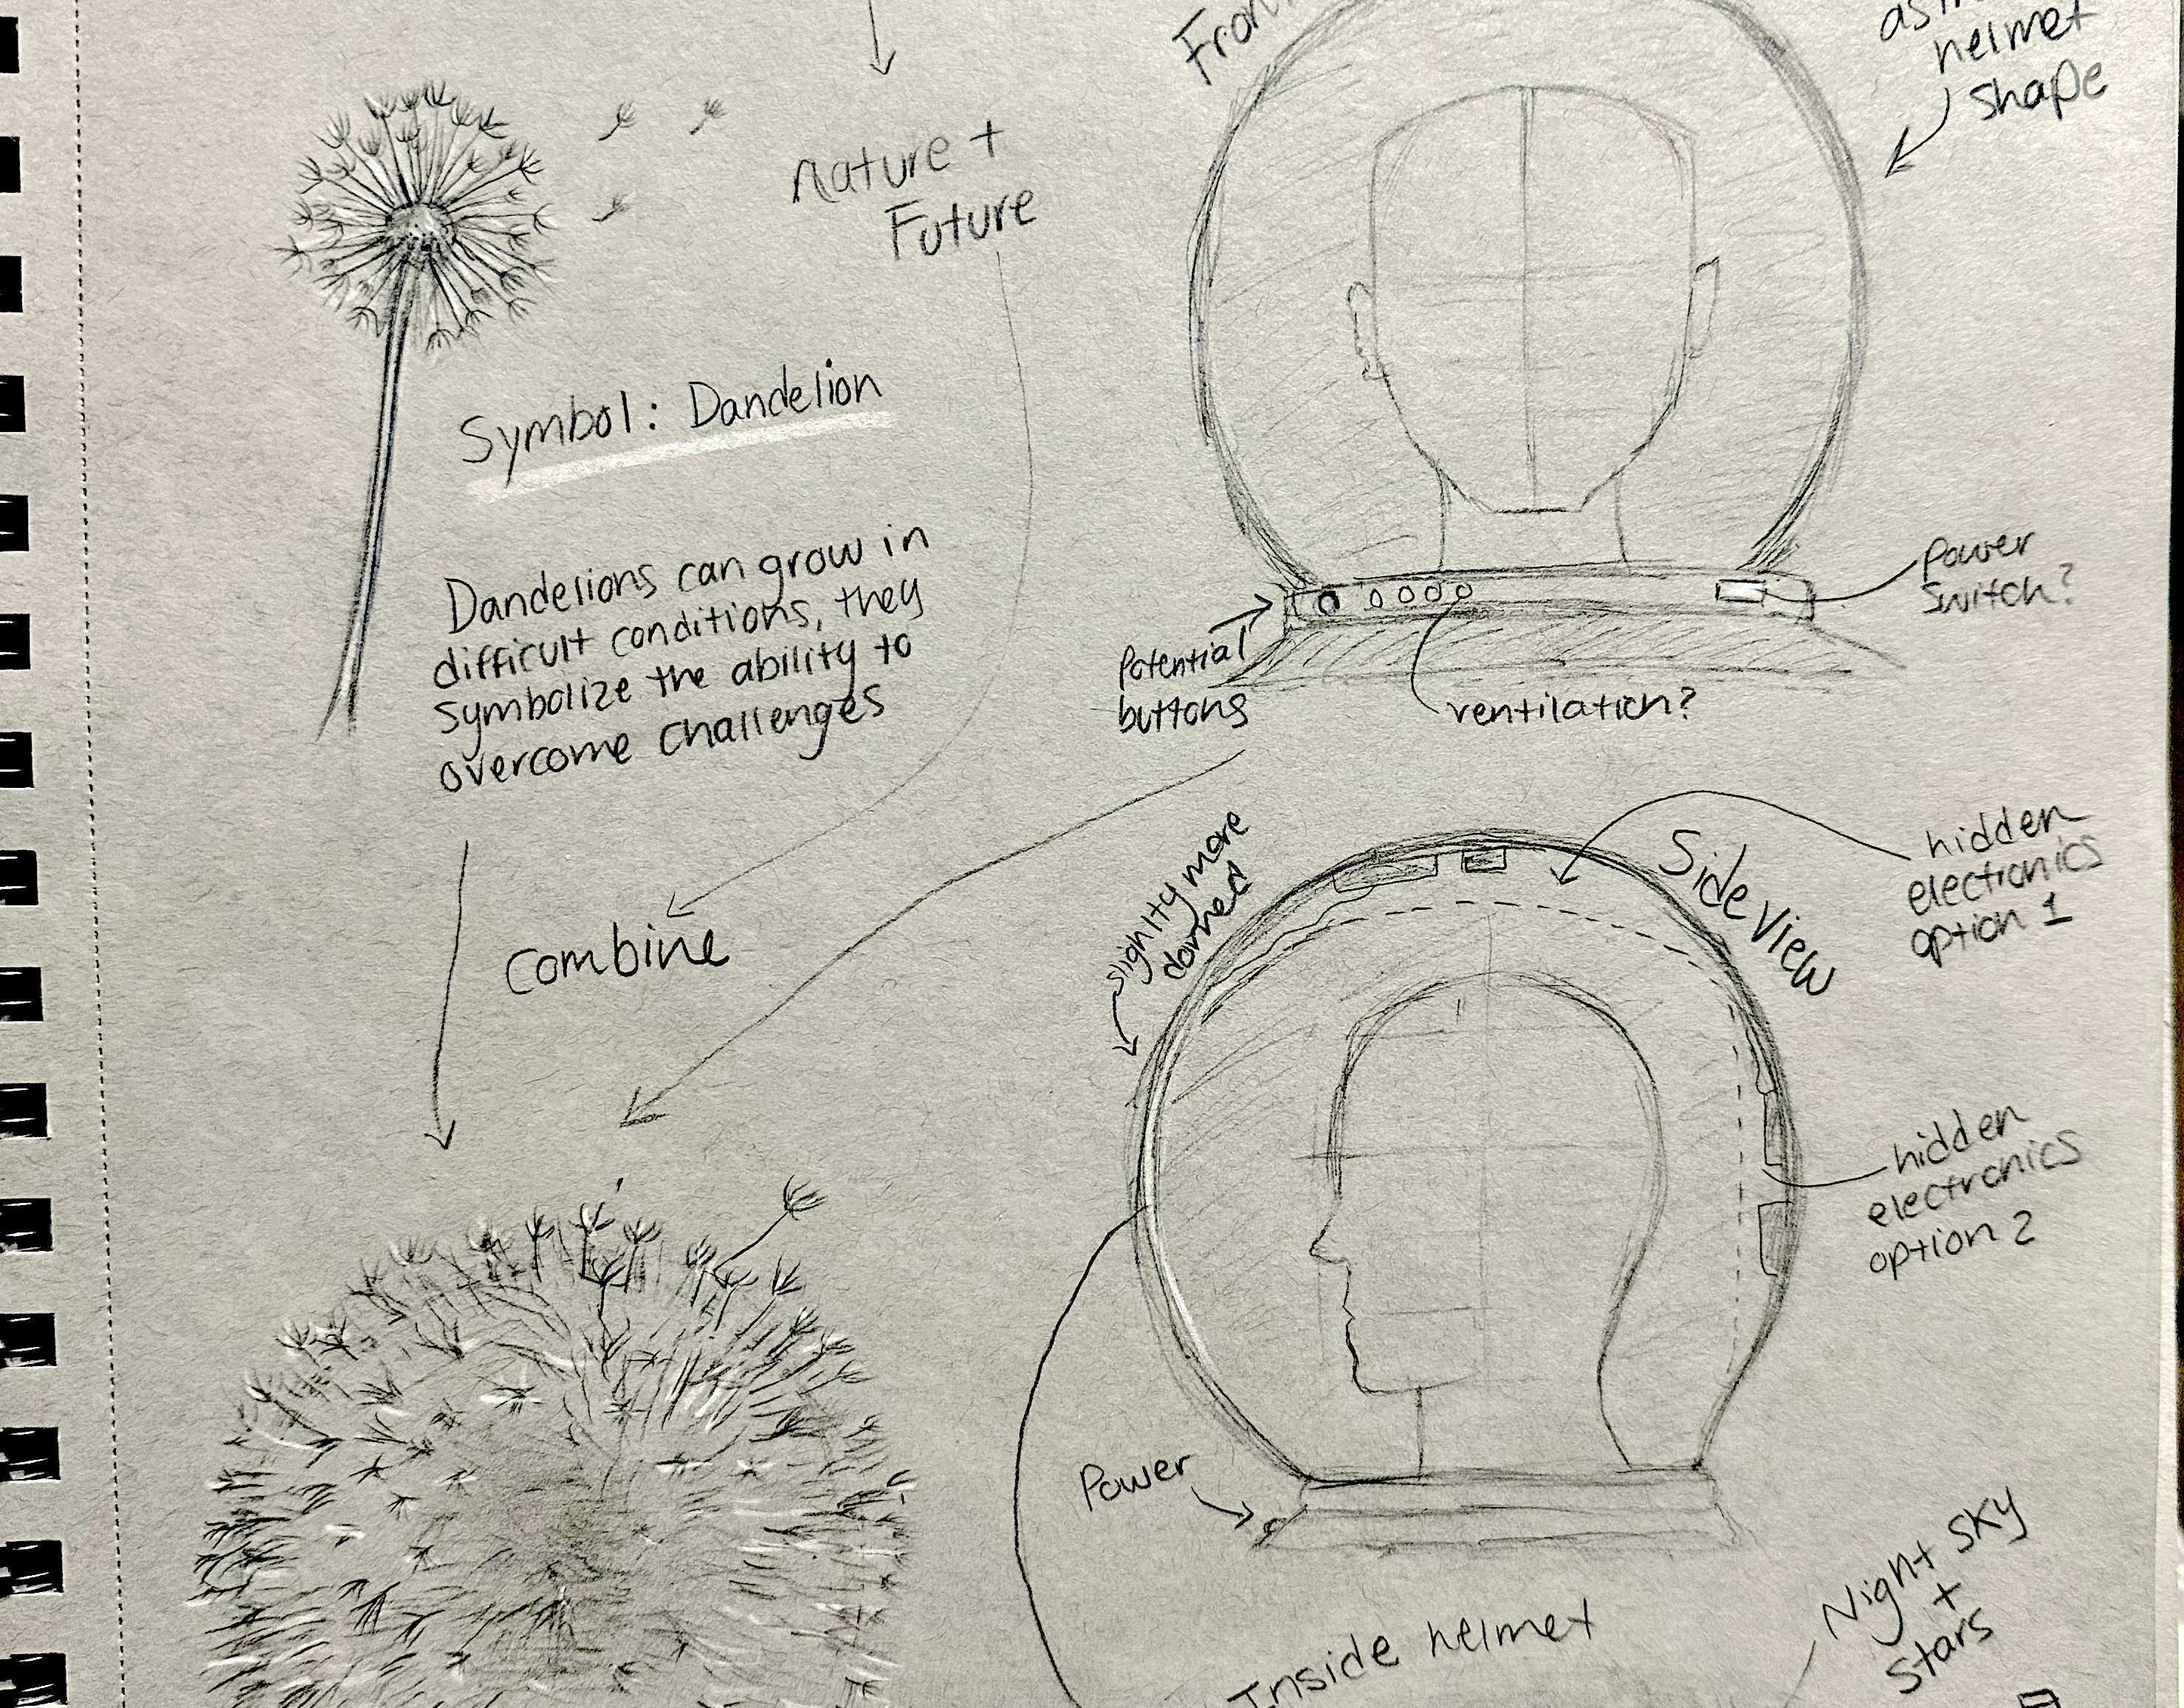 nature +
Future
Symbol: Dandelion
Dandelions can grow in
difficult conditions, they
symbolize the ability to
overcome challenges
combine
Fron
helmet
shape
Power
Switch?
Potential
buttons
ventilation?
slightly more
domed
Side View
hidden
electronics
option 1
hidden
electronics
option 2
Power
Inside helmet
Night sky
+
stars